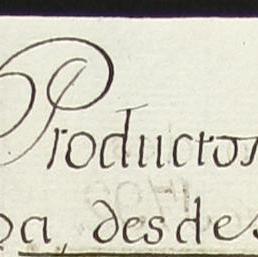 Productos
pa, desde